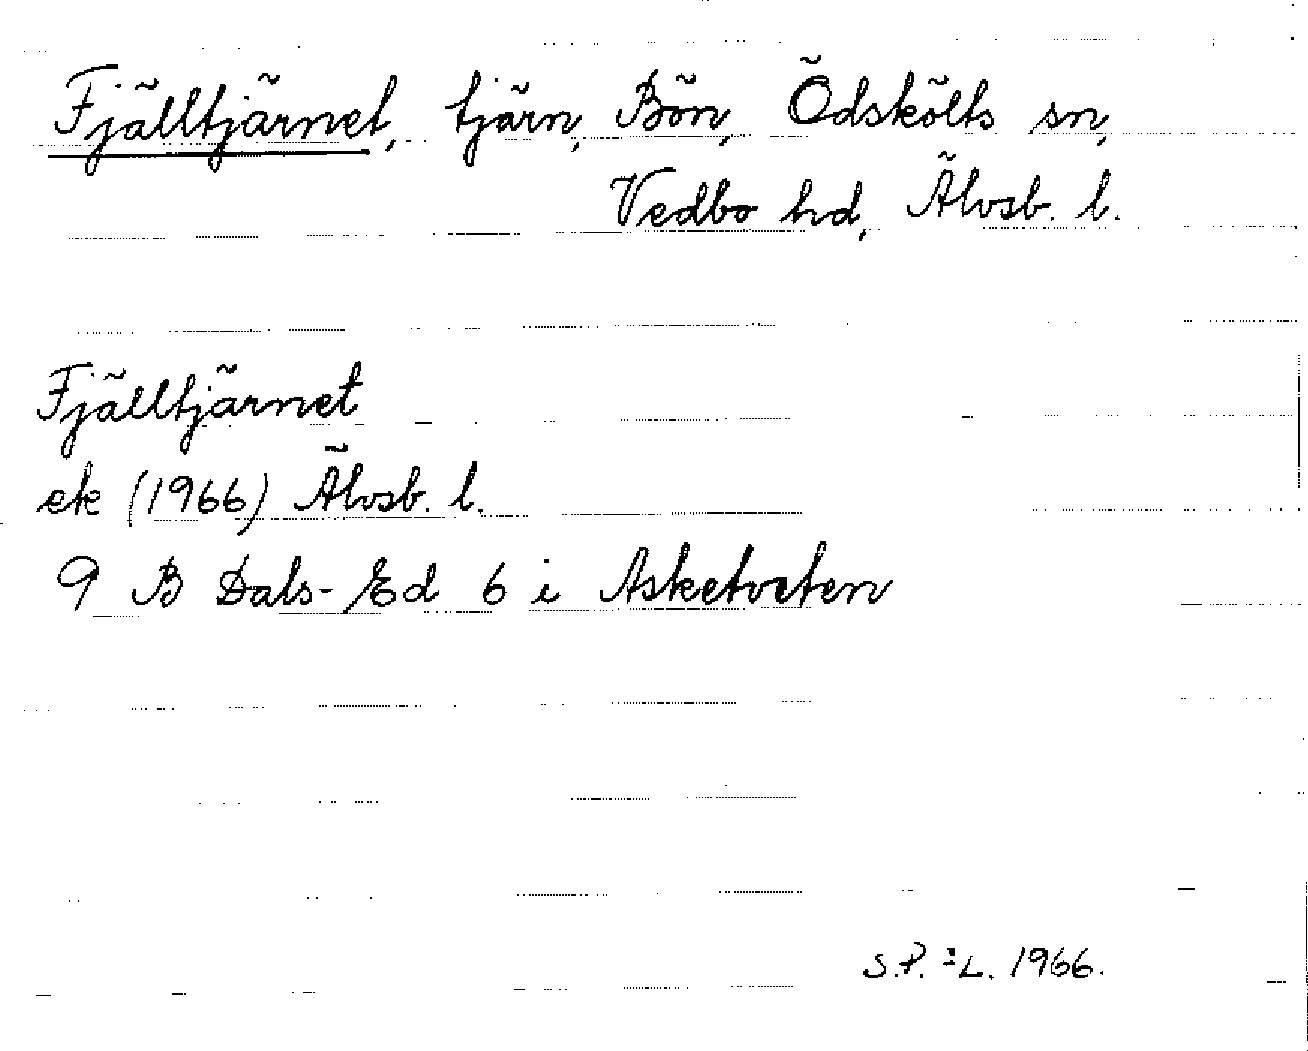 Fjälltjärnet, tjärn, Bön, Ödskölts sn,
Vedbo hd, Älvsb. l.
Fjälltjärnet
ek (1966) Älvsb. l.
9 B Dals-Ed 6 i Asketveten
S.P. 1966.